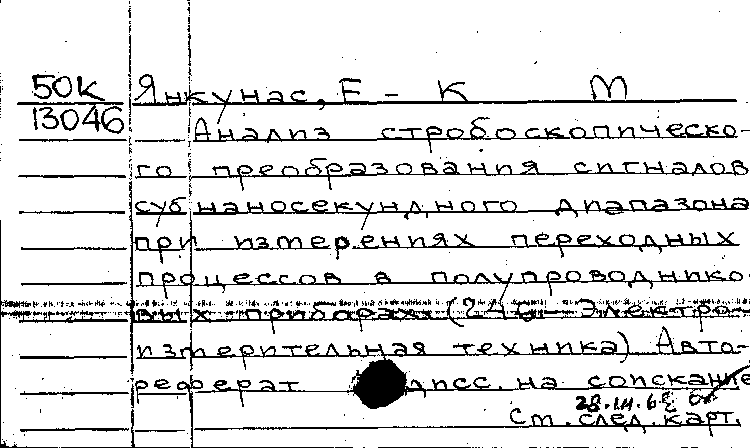 50К Янкунас, Е - К М
13046
Анализ стробоскопическо-
го преобразования сигналов
субнаносекундного диапазона
при измерениях переходных
процессов в полупроводнико-
вых приборах (246 - Электро-
измерительная техника) Авто-
реферат дисс. на соискание
Ст. след. карт.